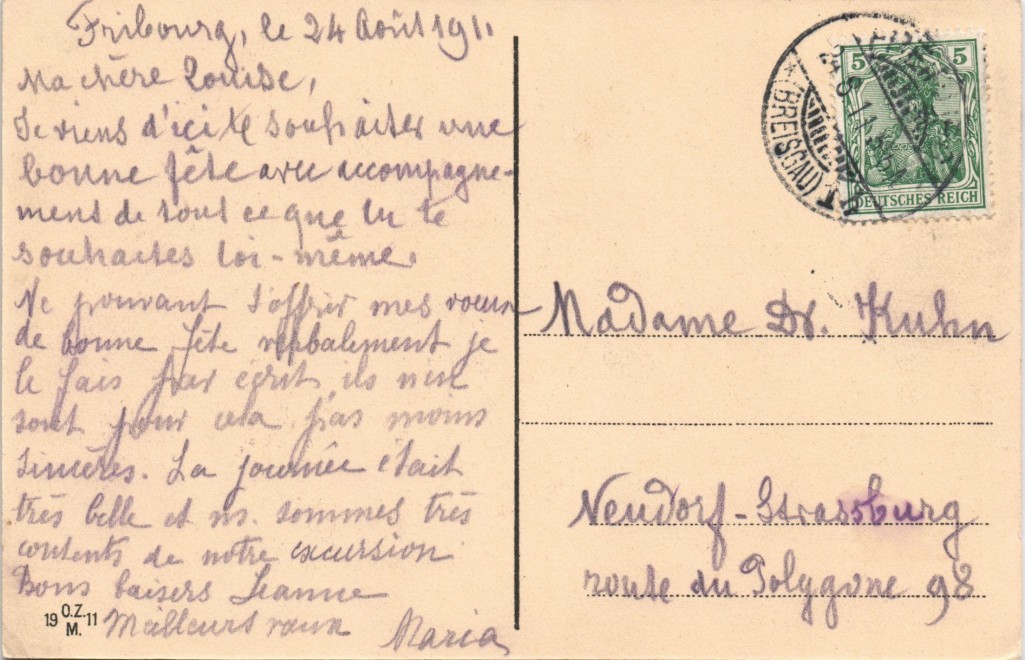 Fribourg, le 24 Août 1911
Ma chère Louise,
Je viens d'ici te souhaiter une
bonne fête avec accompagne-
ment de tout ce que tu te
souhaites toi-même.
Ne pouvant t'offrir mes voeux
de bonne fête verbalement je
le fais par écrit, ils n'en
sont pour cela pas moins
sincères. La journée était
très belle et ns. sommes très
contents de notre excursion.
Bons baisers Jeanne
Meilleurs voeux Maria
19 O.Z. 11
M.
5 5
DEUTSCHES REICH
(BREISGAU)
Madame Dr. Kuhn
Neudorf-Strassburg
route du Polygone 98